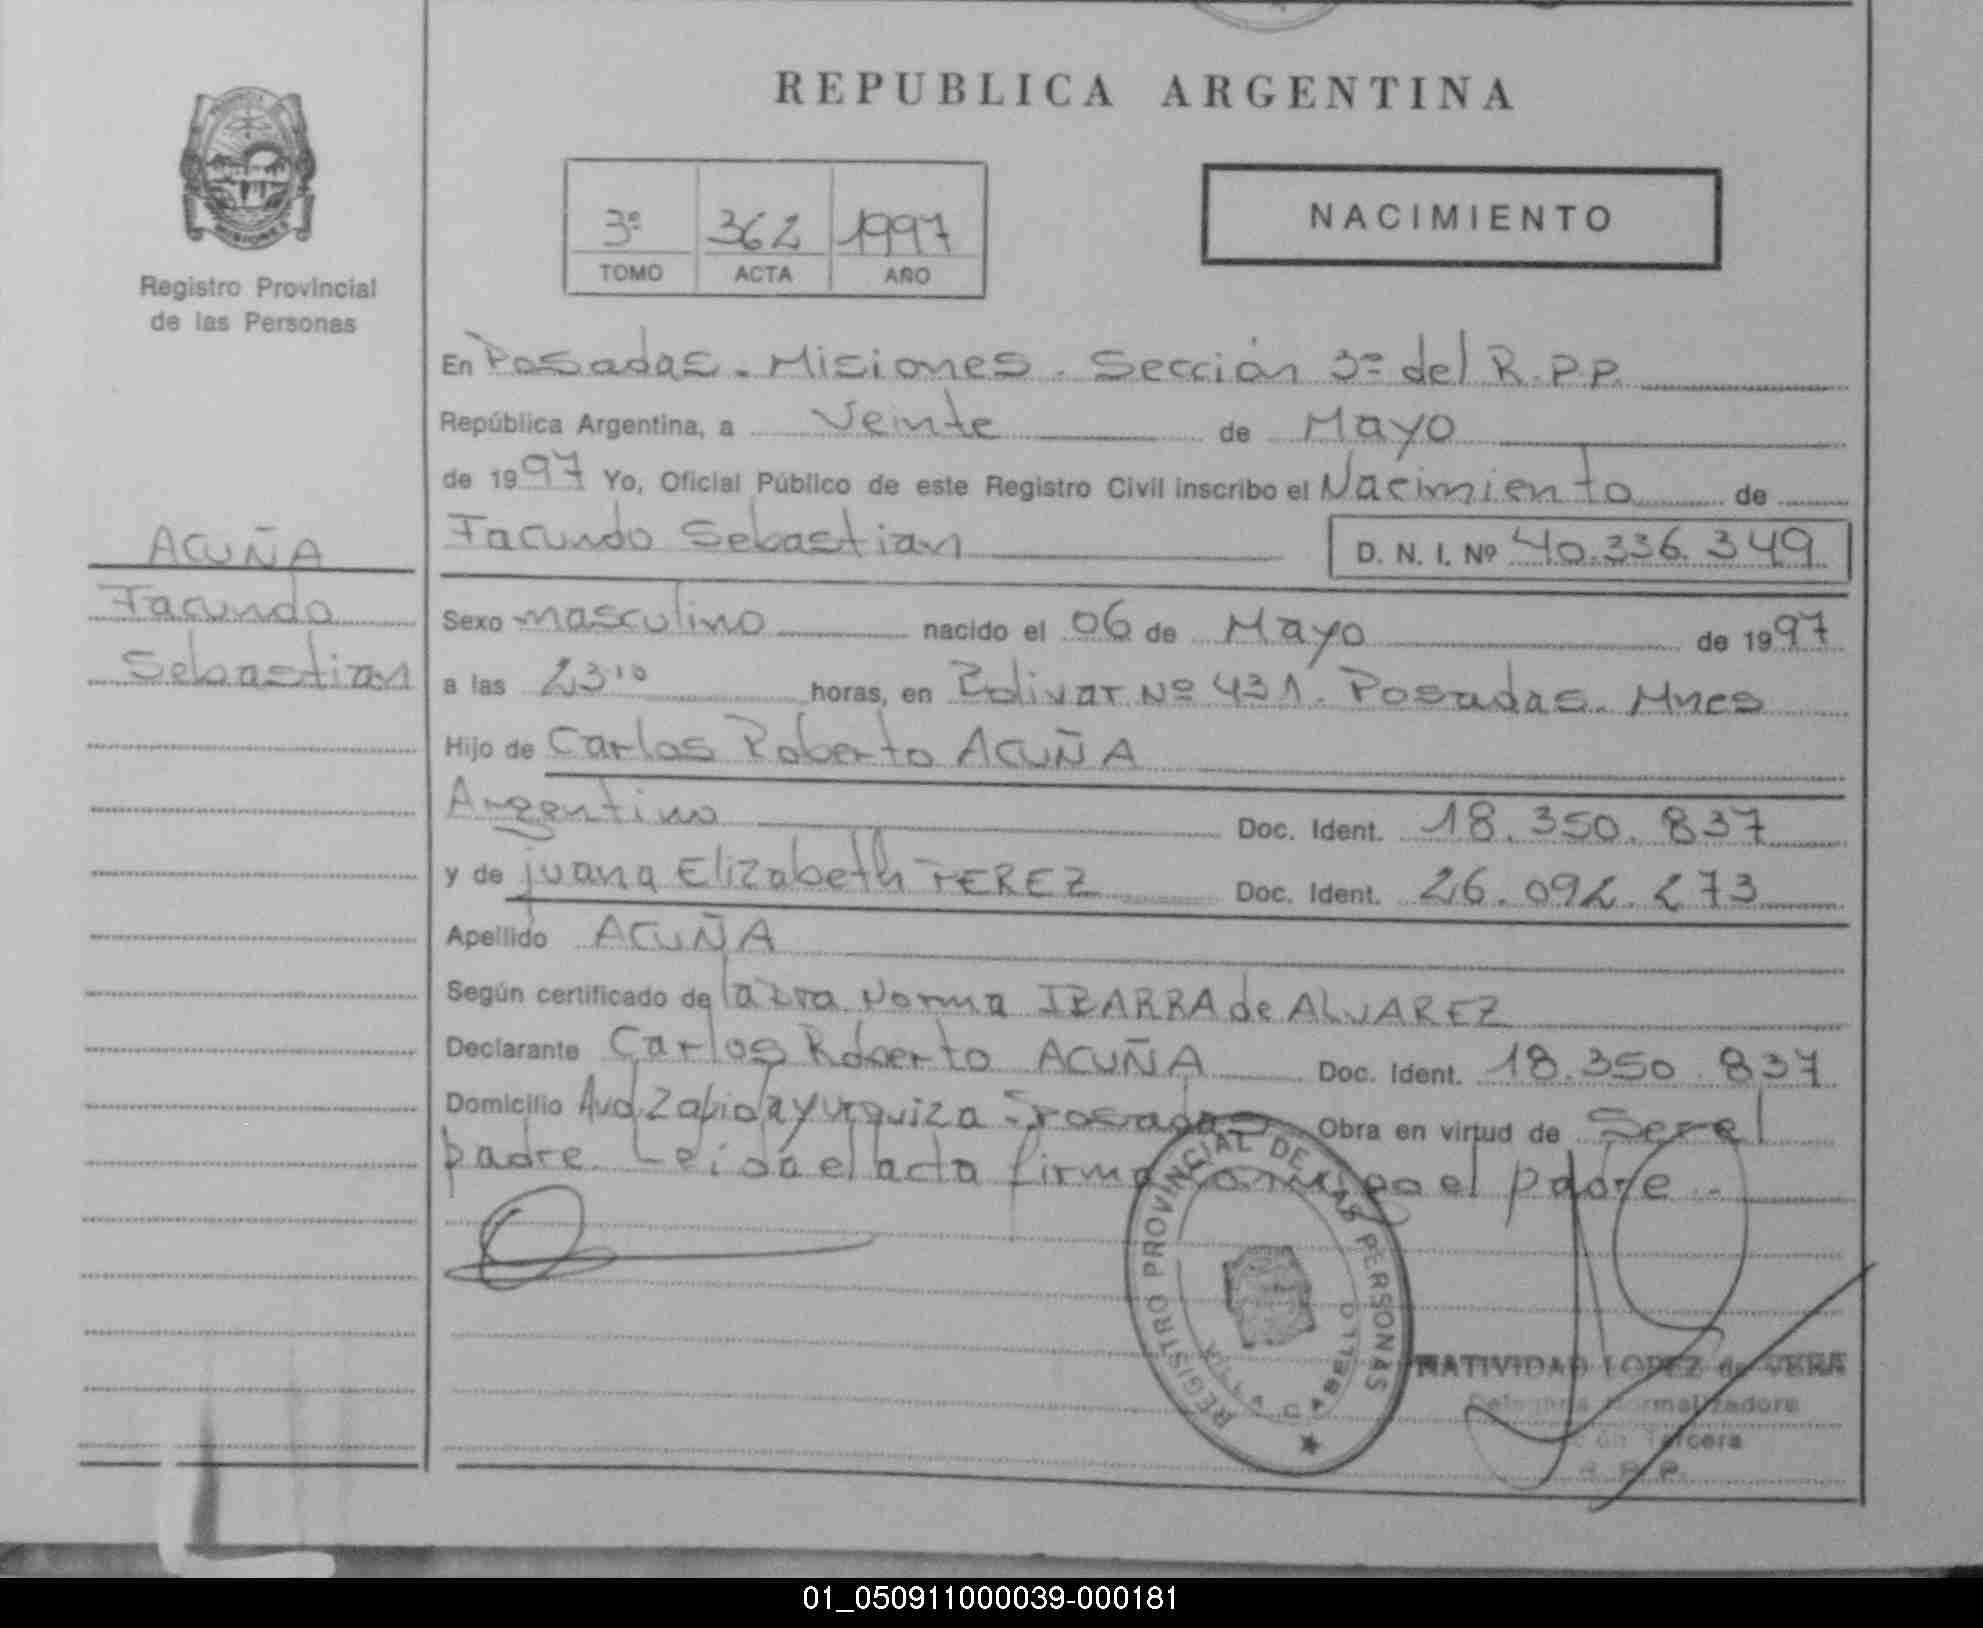 REPUBLICA ARGENTINA
MISIONES
Registro Provincial
de las Personas
3ª 362 1997
TOMO ACTA AÑO
NACIMIENTO
En Posadas. Misiones. Sección 3ª del R.P.P.
República Argentina, a Veinte de Mayo
de 1997 Yo, Oficial Público de este Registro Civil inscribo el Nacimiento de
Facundo Sebastian D. N. I. Nº 40.336.349
ACUÑA
Facundo
Sebastian
Sexo masculino nacido el 06 de Mayo de 1997
a las 23¹⁰ horas, en Bolivar Nº 431. Posadas. Mnes
Hijo de Carlos Roberto ACUÑA
Argentino Doc. Ident. 18.350.837
y de Juana Elizabeth PEREZ Doc. Ident. 26.092.273
Apellido ACUÑA
Según certificado de la Dra. Norma IBARRA de ALVAREZ
Declarante Carlos Roberto ACUÑA Doc. Ident. 18.350.837
Domicilio Avd. Zapiola y Urquiza - Posadas Obra en virtud de Ser el
padre. Leida el acta firma conmigo el padre.-
REGISTRO PROVINCIAL DE LAS PERSONAS
NATIVIDAD LOPEZ de VERA
Delegada Normalizadora
Tercera
R. P. P.
01_050911000039-000181